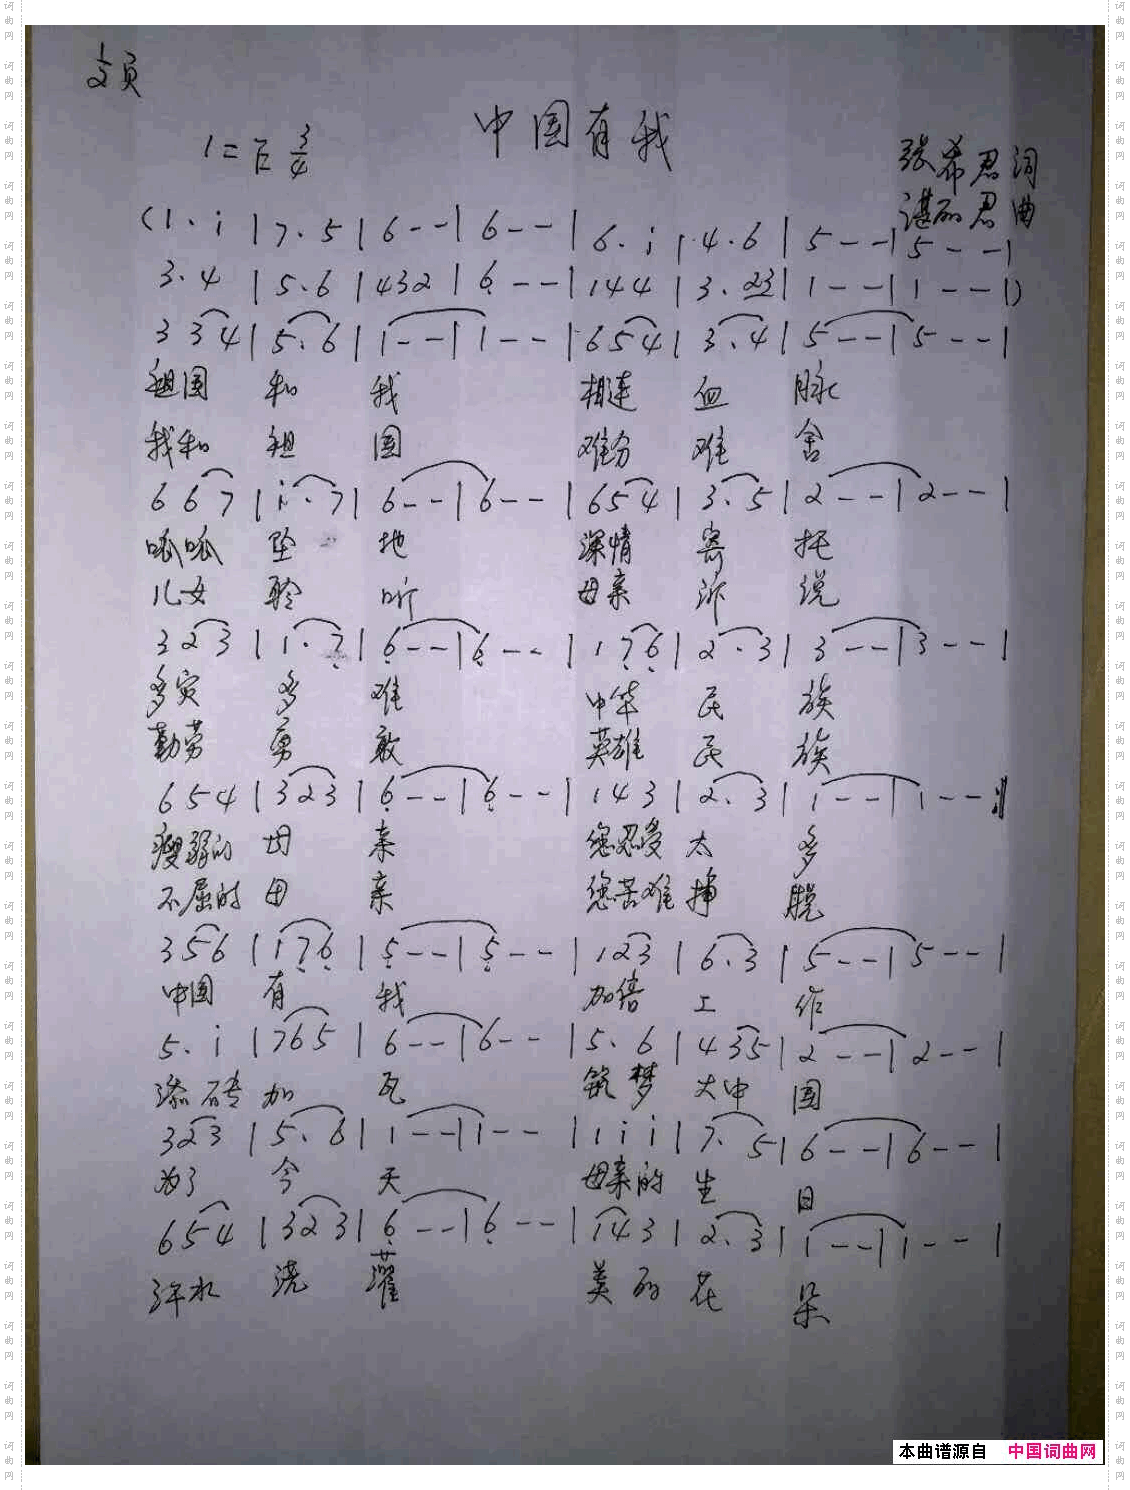 中国有我
1= 3/4
张希君词
谌丽君曲
(1· i | 7· 5 | 6 - - | 6 - - | 6· i | 4· 6 | 5 - - | 5 - - |
3· 4 | 5· 6 | 4 3 2 | 6̣ - - | 1 4 4 | 3· 2 3 | 1 - - | 1 - - |)
3 3 4 | 5· 6 | 1 - - | 1 - - | 6 5 4 | 3· 4 | 5 - - | 5 - - |
祖国 和 我 相连 血 脉
我和 祖 国 难分 难 舍
6 6 7 | i· 7 | 6 - - | 6 - - | 6 5 4 | 3· 5 | 2 - - | 2 - - |
呱呱 坠 地 深情 寄 托
儿女 聆 听 母亲 诉 说
3 2 3 | 1· 7̣ | 6̣ - - | 6̣ - - | 1 7̣ 6̣ | 2· 3 | 3 - - | 3 - - |
多灾 多 难 中华 民 族
勤劳 勇 敢 英雄 民 族
6 5 4 | 3 2 3 | 6̣ - - | 6̣ - - | 1 4 3 | 2· 3 | 1 - - | 1 - - :‖
瘦弱的 母 亲 您忍受 太 多
不屈的 母 亲 您苦难 挣 脱
3 5 6 | 1 7̣ 6̣ | 5̣ - - | 5̣ - - | 1 2 3 | 6· 3 | 5 - - | 5 - - |
中国 有 我 加倍 工 作
5· i | 7 6 5 | 6 - - | 6 - - | 5· 6 | 4 3 5 | 2 - - | 2 - - |
添砖 加 瓦 筑梦 大中 国
3 2 3 | 5· 6 | 1 - - | 1 - - | 1 i i | 7· 5 | 6 - - | 6 - - |
为了 今 天 母亲的 生 日
6 5 4 | 3 2 3 | 6̣ - - | 6̣ - - | 1 4 3 | 2· 3 | 1 - - | 1 - - |
汗水 浇 灌 美丽 花 朵
本曲谱源自 中国词曲网